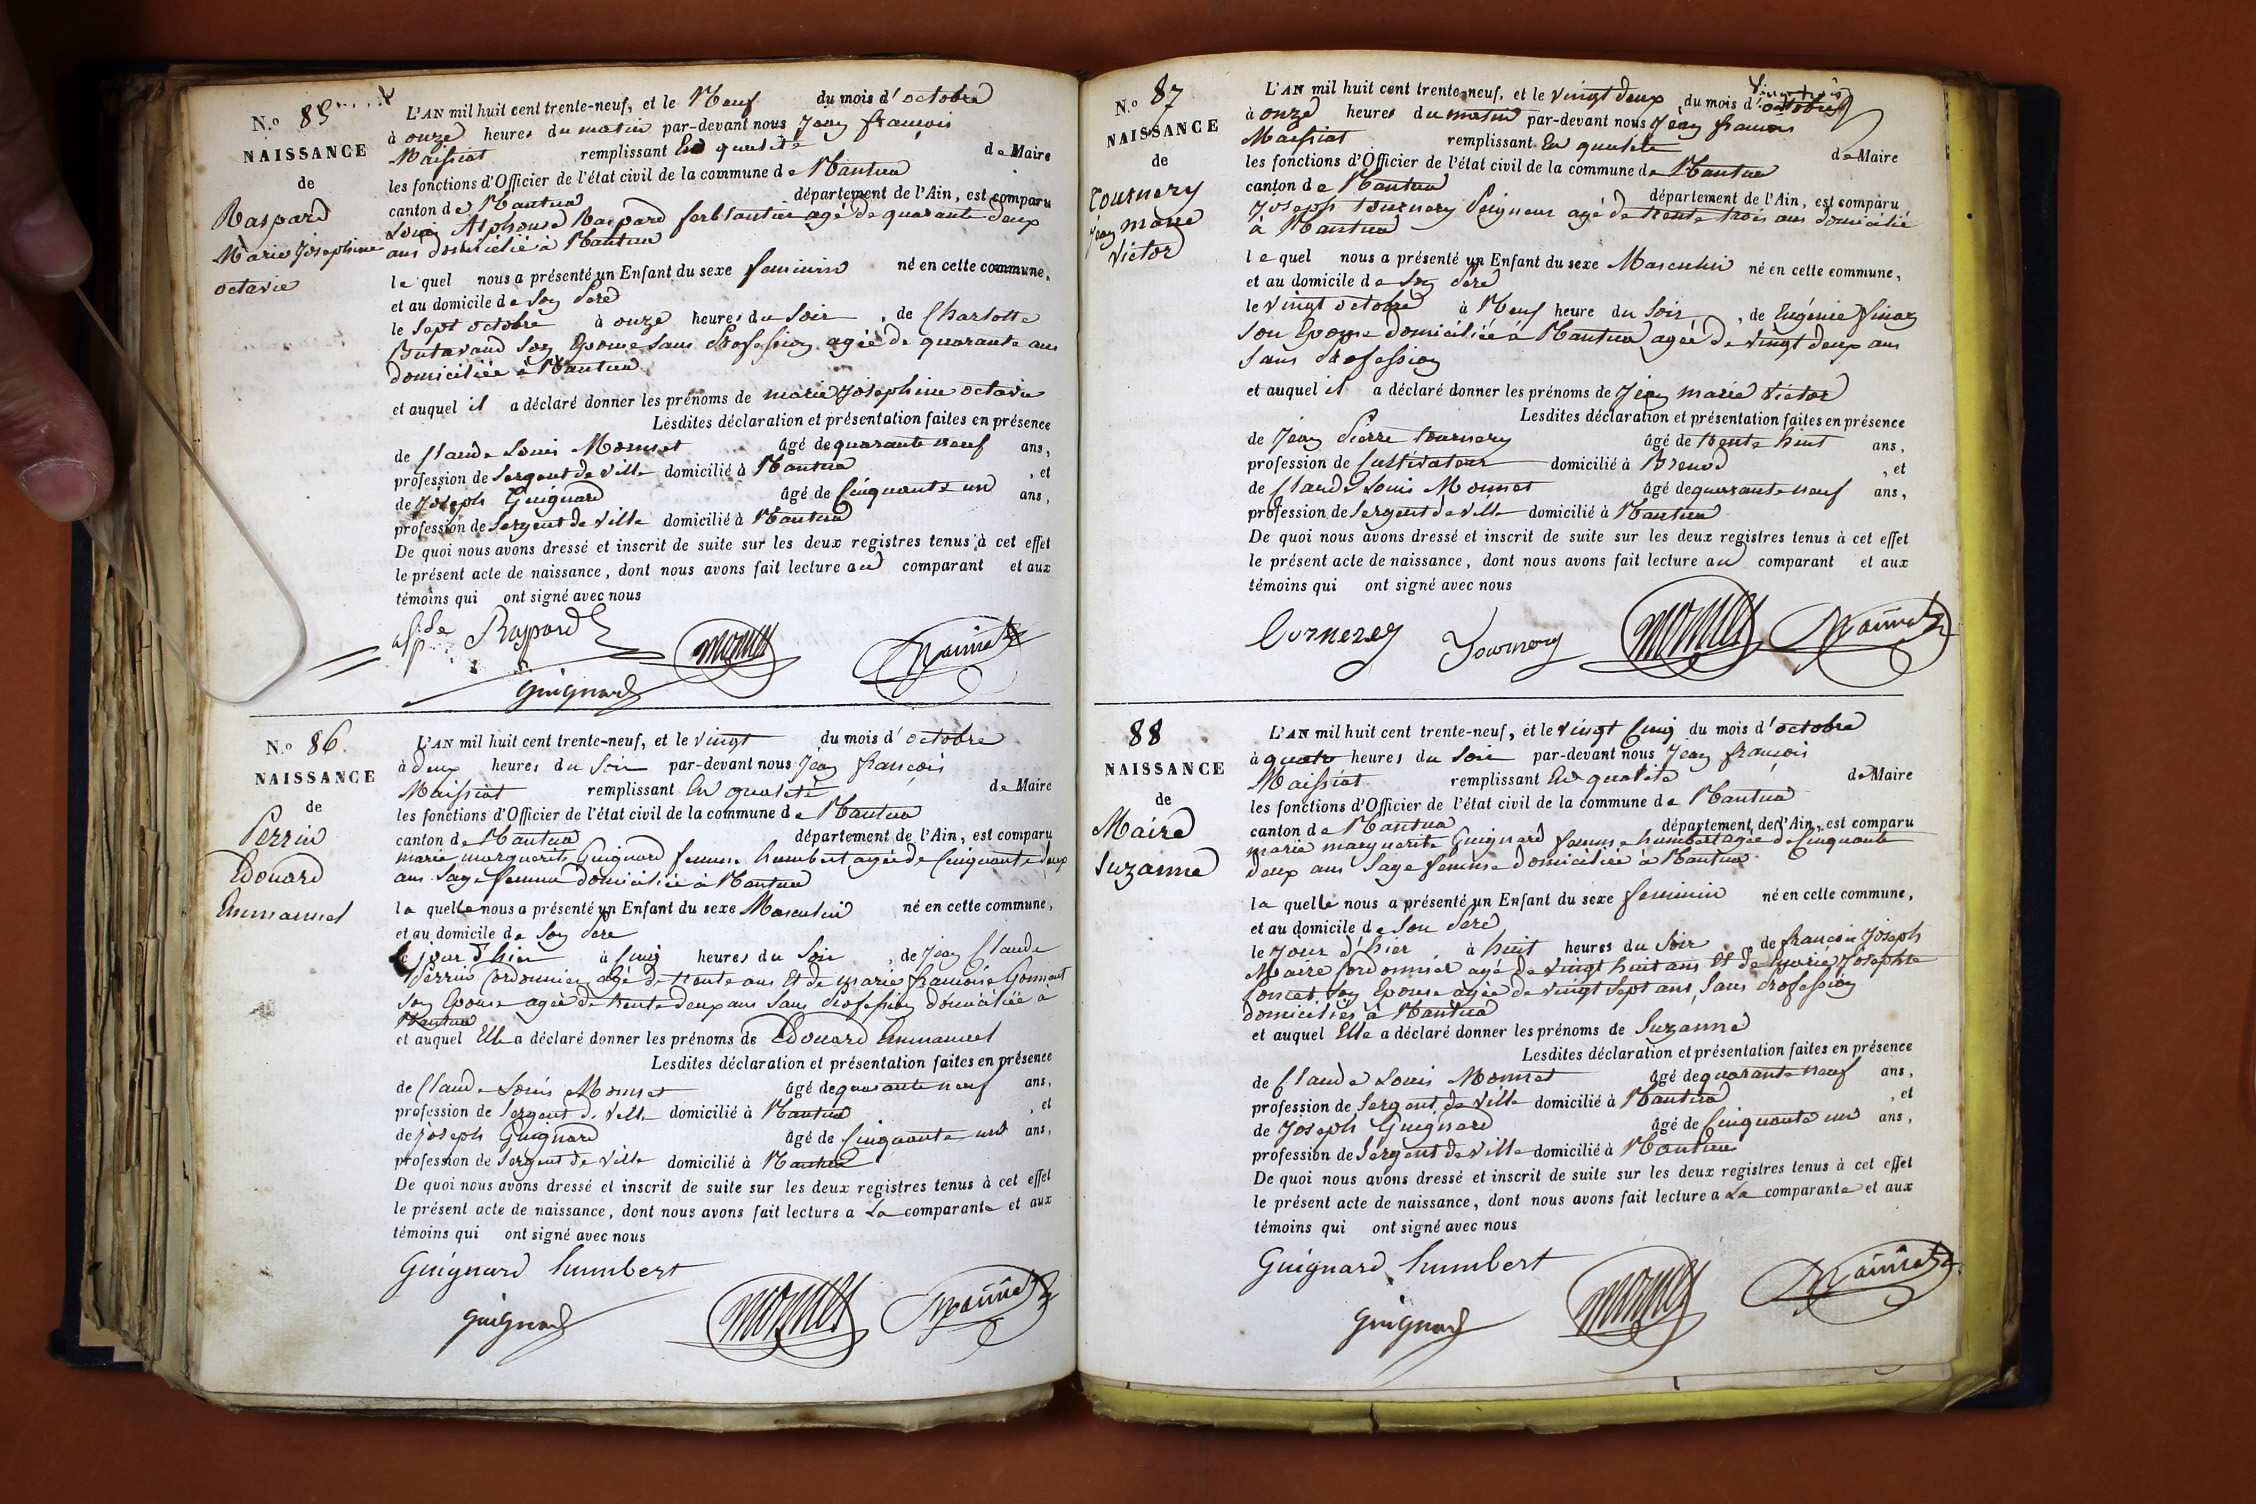 N.o 85
NAISSANCE
de
Raspard
Marie Josephine
octavie
L'AN mil huit cent trente-neuf, et le Neuf du mois d'octobre
à onze heures du matin par-devant nous Jean françois
Maissiat remplissant En qualité de Maire
les fonctions d'Officier de l'état civil de la commune de Nantua
canton de Nantua département de l'Ain, est comparu
Louis Alphonse Raspard ferblantier agé de quarante deux
ans domicilié à Nantua
le quel nous a présenté un Enfant du sexe feminin né en cette commune,
et au domicile de son Pere
le sept octobre à onze heures du soir, de Charlotte
Butavand son Epouse sans Profession agée de quarante ans
domiciliée à Nantua
et auquel il a déclaré donner les prénoms de marie Josephine octavie
Lesdites déclaration et présentation faites en présence
de Claude Louis Monnet âgé de quarante neuf ans,
profession de Sergent de ville domicilié à Nantua, et
de Joseph Guignard âgé de Cinquante un ans,
profession de Sergent de ville domicilié à Nantua
De quoi nous avons dressé et inscrit de suite sur les deux registres tenus à cet effet
le présent acte de naissance, dont nous avons fait lecture au comparant et aux
témoins qui ont signé avec nous
alp.de Raspard monnet
guignard
N.o 86.
NAISSANCE
de
Perrin
Edouard
Emmanuel
L'AN mil huit cent trente-neuf, et le vingt du mois d'octobre
à deux heures du soir par-devant nous Jean françois
Maissiat remplissant En qualité de Maire
les fonctions d'Officier de l'état civil de la commune de Nantua
canton de Nantua département de l'Ain, est comparu
marie marguerite Guignard femme humbert agée de Cinquante deux
ans Sage femme domiciliée à Nantua
la quelle nous a présenté un Enfant du sexe Masculin né en cette commune,
et au domicile de son Pere
le jour d'hier à Cinq heures du Soir, de Jean Claude
Perrin Cordonnier agé de trente ans Et de marie françoise
son Epouse agée de trente deux ans sans Profession domiciliée à
Nantua
et auquel Elle a déclaré donner les prénoms de Edouard Emmanuel
Lesdites déclaration et présentation faites en présence
de Claude Louis Monnet âgé de quarante neuf ans,
profession de Sergent de Ville domicilié à Nantua, et
de Joseph Guignard âgé de Cinquante un ans,
profession de Sergent de ville domicilié à Nantua
De quoi nous avons dressé et inscrit de suite sur les deux registres tenus à cet effet
le présent acte de naissance, dont nous avons fait lecture a La comparante et aux
témoins qui ont signé avec nous
Guignard humbert
guignard monnet
N.o 87
NAISSANCE
de
Tournery
Jean marie
Victor
L'AN mil huit cent trente-neuf, et le vingt deux du mois d'octobre
à onze heures du matin par-devant nous Jean françois
Maissiat remplissant En qualité de Maire
les fonctions d'Officier de l'état civil de la commune de Nantua
canton de Nantua département de l'Ain, est comparu
Joseph tournery Peigneur agé de trente trois ans domicilié
à Nantua
le quel nous a présenté un Enfant du sexe Masculin né en cette commune,
et au domicile de son Pere
le vingt octobre à Neuf heure du Soir, de Eugénie
son Epouse domiciliée à Nantua agée de vingt deux ans
sans Profession
et auquel il a déclaré donner les prénoms de Jean marie Victor
Lesdites déclaration et présentation faites en présence
de Jean Pierre tournery âgé de trente huit ans,
profession de Cultivateur domicilié à Brenod, et
de Claude Louis Monnet âgé de quarante neuf ans,
profession de Sergent de ville domicilié à Nantua
De quoi nous avons dressé et inscrit de suite sur les deux registres tenus à cet effet
le présent acte de naissance, dont nous avons fait lecture au comparant et aux
témoins qui ont signé avec nous
Tournery monnet
88
NAISSANCE
de
Maire
Suzanne
L'AN mil huit cent trente-neuf, et le vingt Cinq du mois d'octobre
à quatre heures du soir par-devant nous Jean françois
Maissiat remplissant En qualité de Maire
les fonctions d'Officier de l'état civil de la commune de Nantua
canton de Nantua département de l'Ain, est comparu
marie marguerite Guignard femme humbert agée de Cinquante
deux ans Sage femme domiciliée à Nantua
la quelle nous a présenté un Enfant du sexe feminin né en cette commune,
et au domicile de son Pere
le Jour d'hier à huit heures du Soir, de françois Joseph
Maire Cordonnier agé de vingt huit ans Et de marie Josephte
Poncet son Epouse agée de vingt sept ans, sans Profession
domiciliés à Nantua
et auquel Elle a déclaré donner les prénoms de Suzanne
Lesdites déclaration et présentation faites en présence
de Claude Louis Monnet âgé de quarante neuf ans,
profession de Sergent de ville domicilié à Nantua, et
de Joseph Guignard âgé de Cinquante un ans,
profession de Sergent de ville domicilié à Nantua
De quoi nous avons dressé et inscrit de suite sur les deux registres tenus à cet effet
le présent acte de naissance, dont nous avons fait lecture a La comparante et aux
témoins qui ont signé avec nous
Guignard humbert
guignard monnet